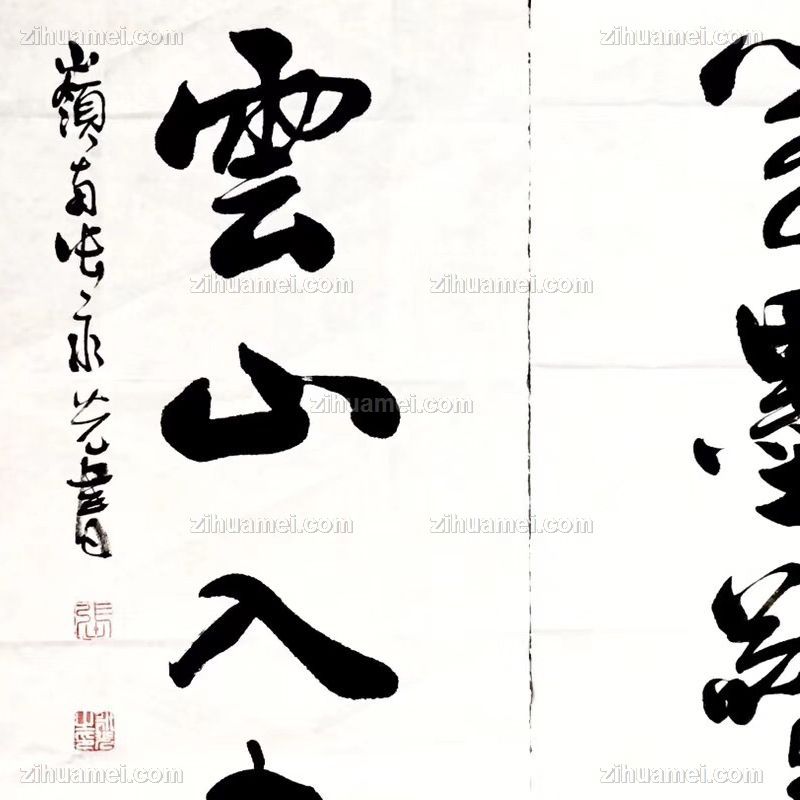 墨
雲山入
嶺南张永光書
張
zihuamei.com
zihuamei.com
zihuamei.com
zihuamei.com
zihuamei.com
zihuamei.com
zihuamei.com
zihuamei.com
zihuamei.com
zihuamei.com
zihuamei.com